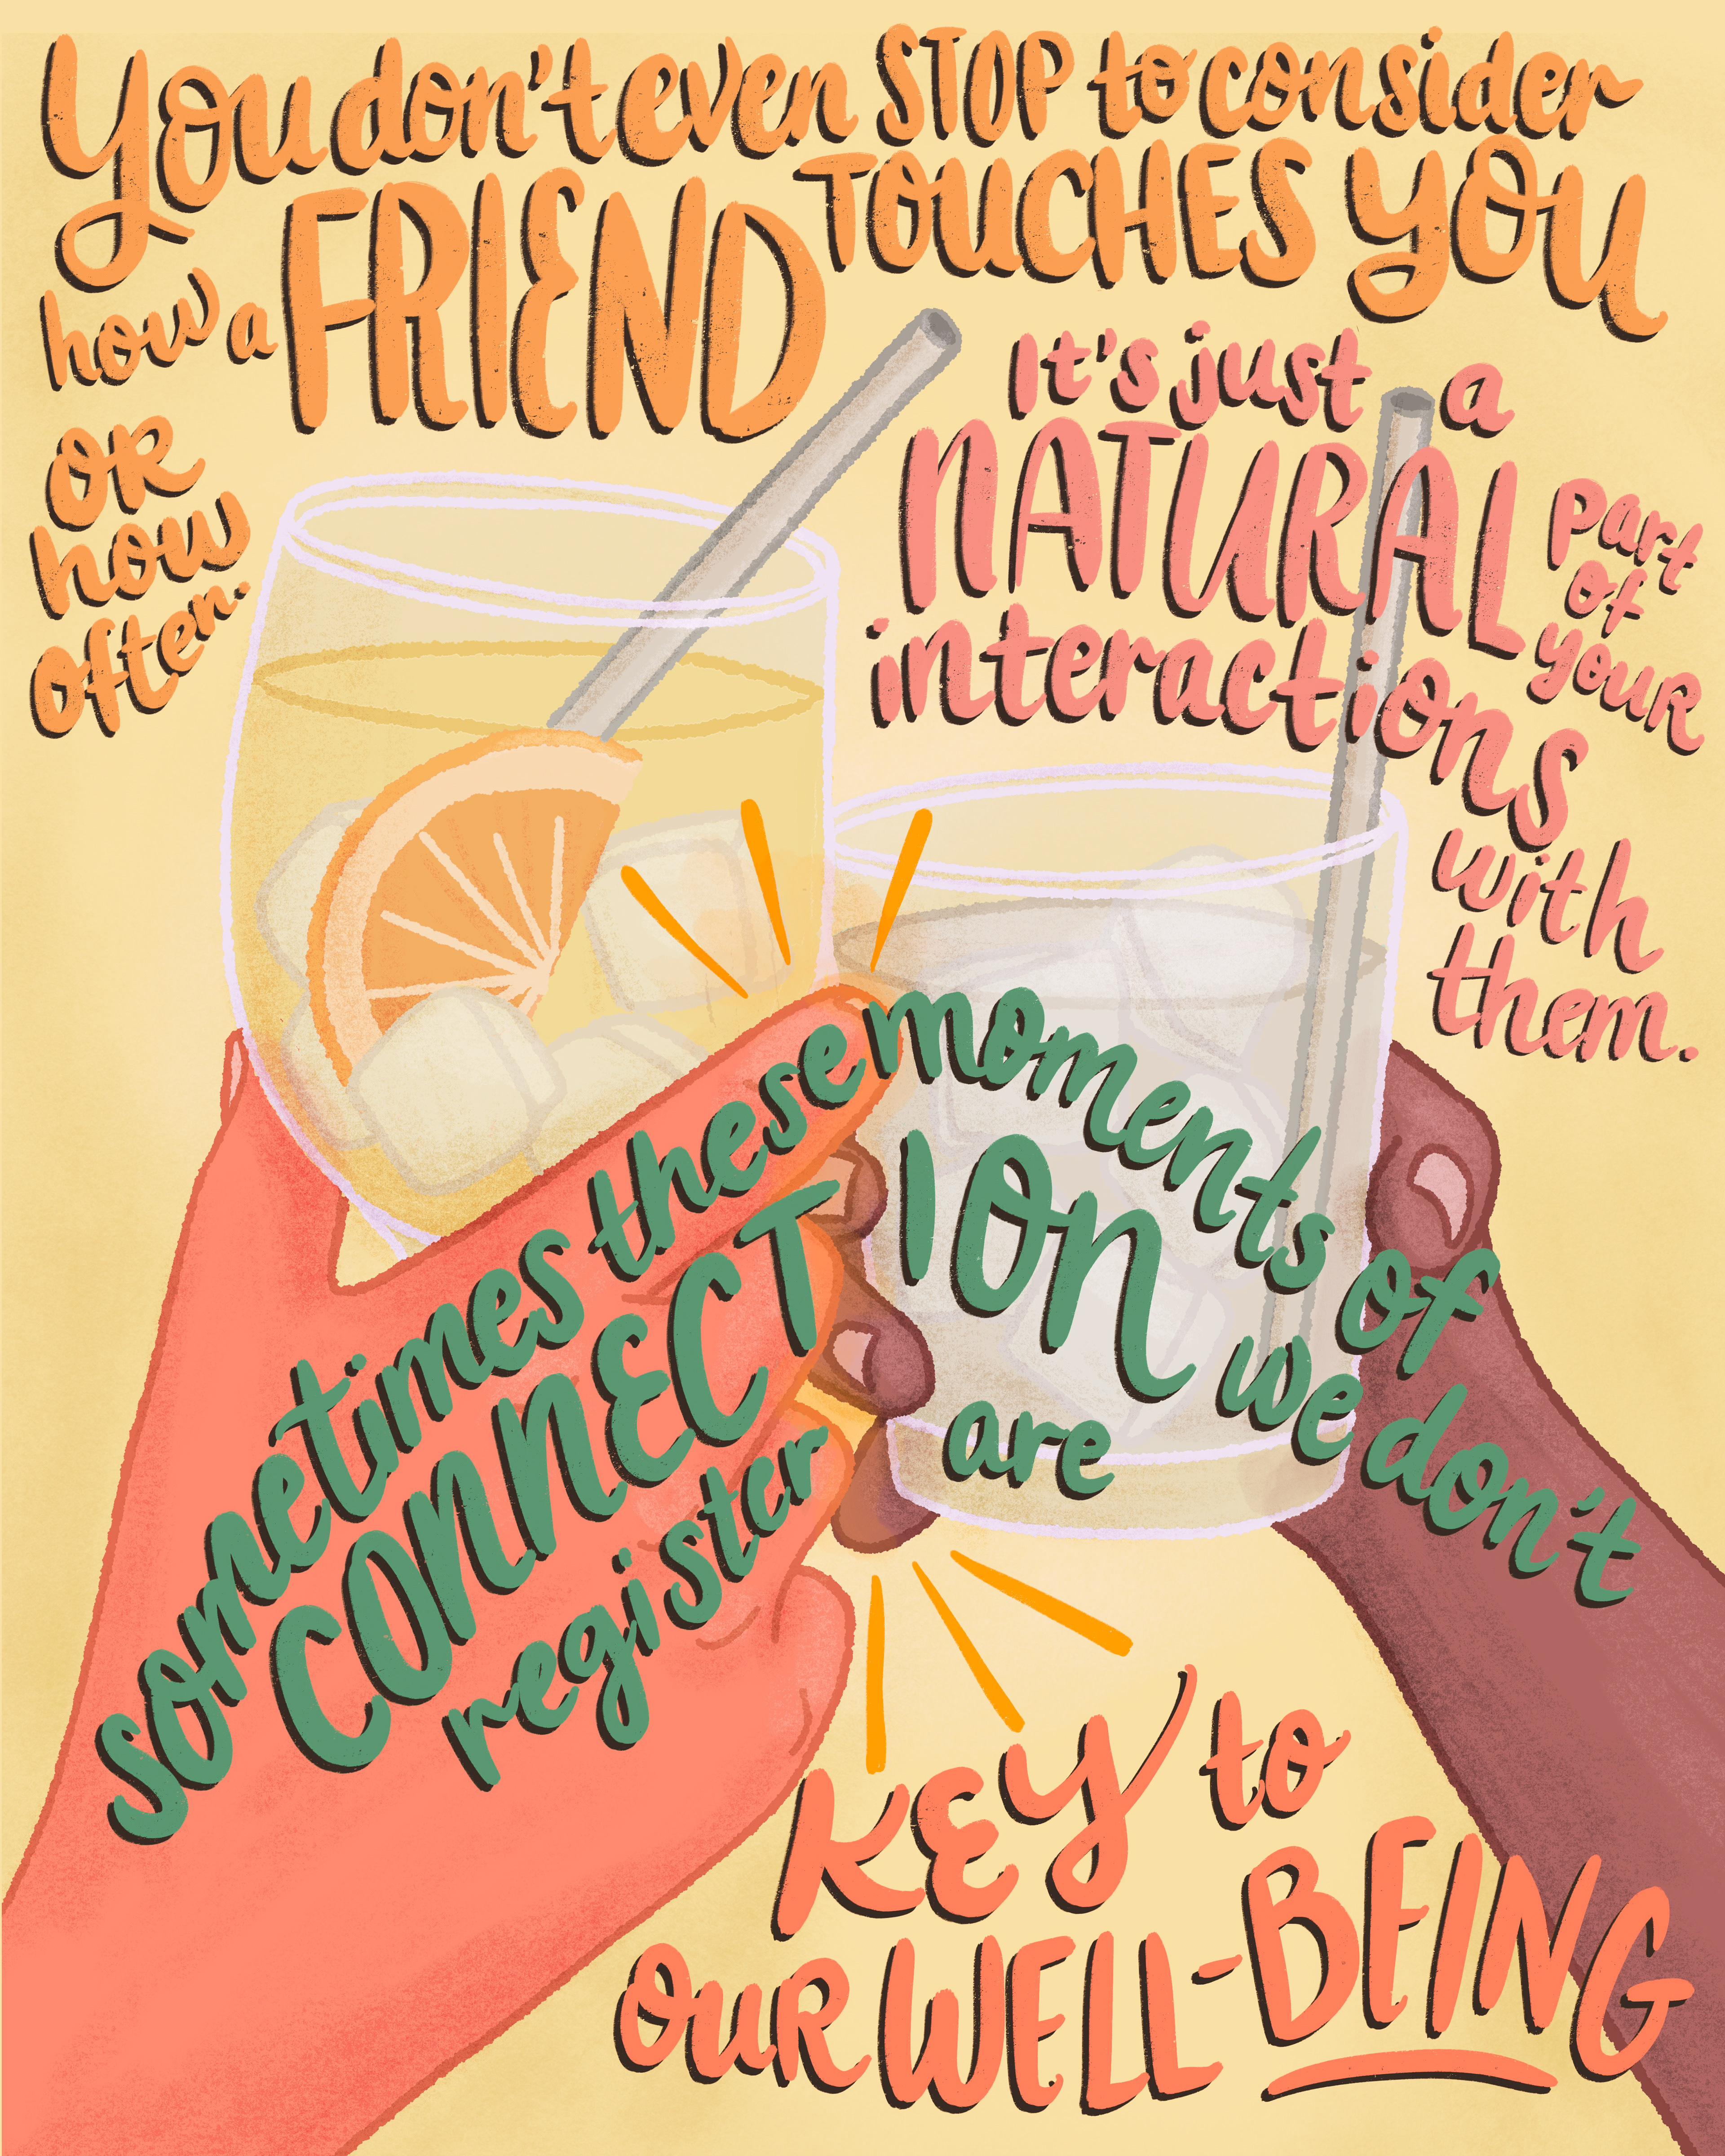 You don't even STOP to consider
how a FRIEND TOUCHES YOU
OR
how
often.
It's just a
NATURAL
part
of
your
interactions
with
them.
sometimes these moments of
CONNECTION we don't
register are
KEY to
OUR WELL-BEING